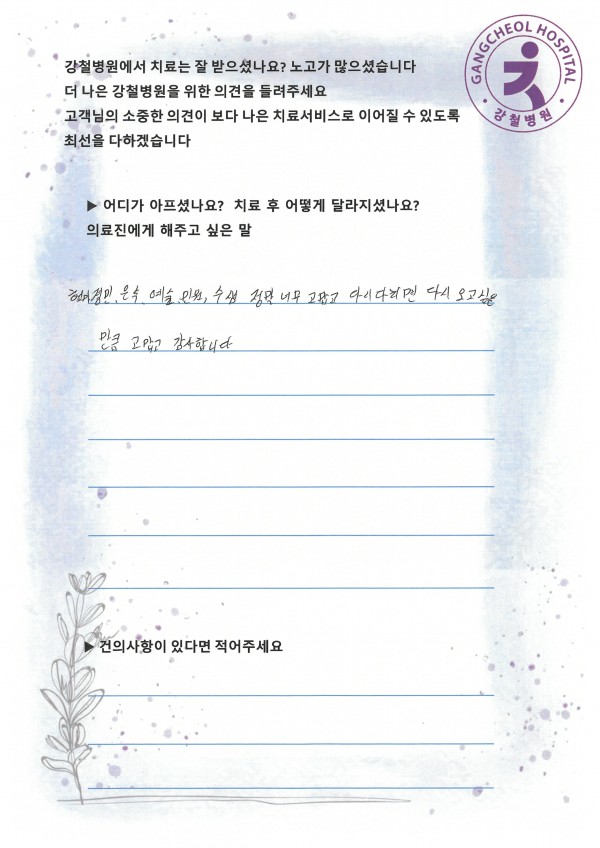 GANGCHEOL HOSPITAL
강철병원
강철병원에서 치료는 잘 받으셨나요? 노고가 많으셨습니다
더 나은 강철병원을 위한 의견을 들려주세요
고객님의 소중한 의견이 보다 나은 치료서비스로 이어질 수 있도록
최선을 다하겠습니다
▶ 어디가 아프셨나요? 치료 후 어떻게 달라지셨나요?
의료진에게 해주고 싶은 말
은수, 예슬, 수샘 정말 너무 고맙고 다시 오고싶은
만큼 고맙고 감사합니다
▶ 건의사항이 있다면 적어주세요